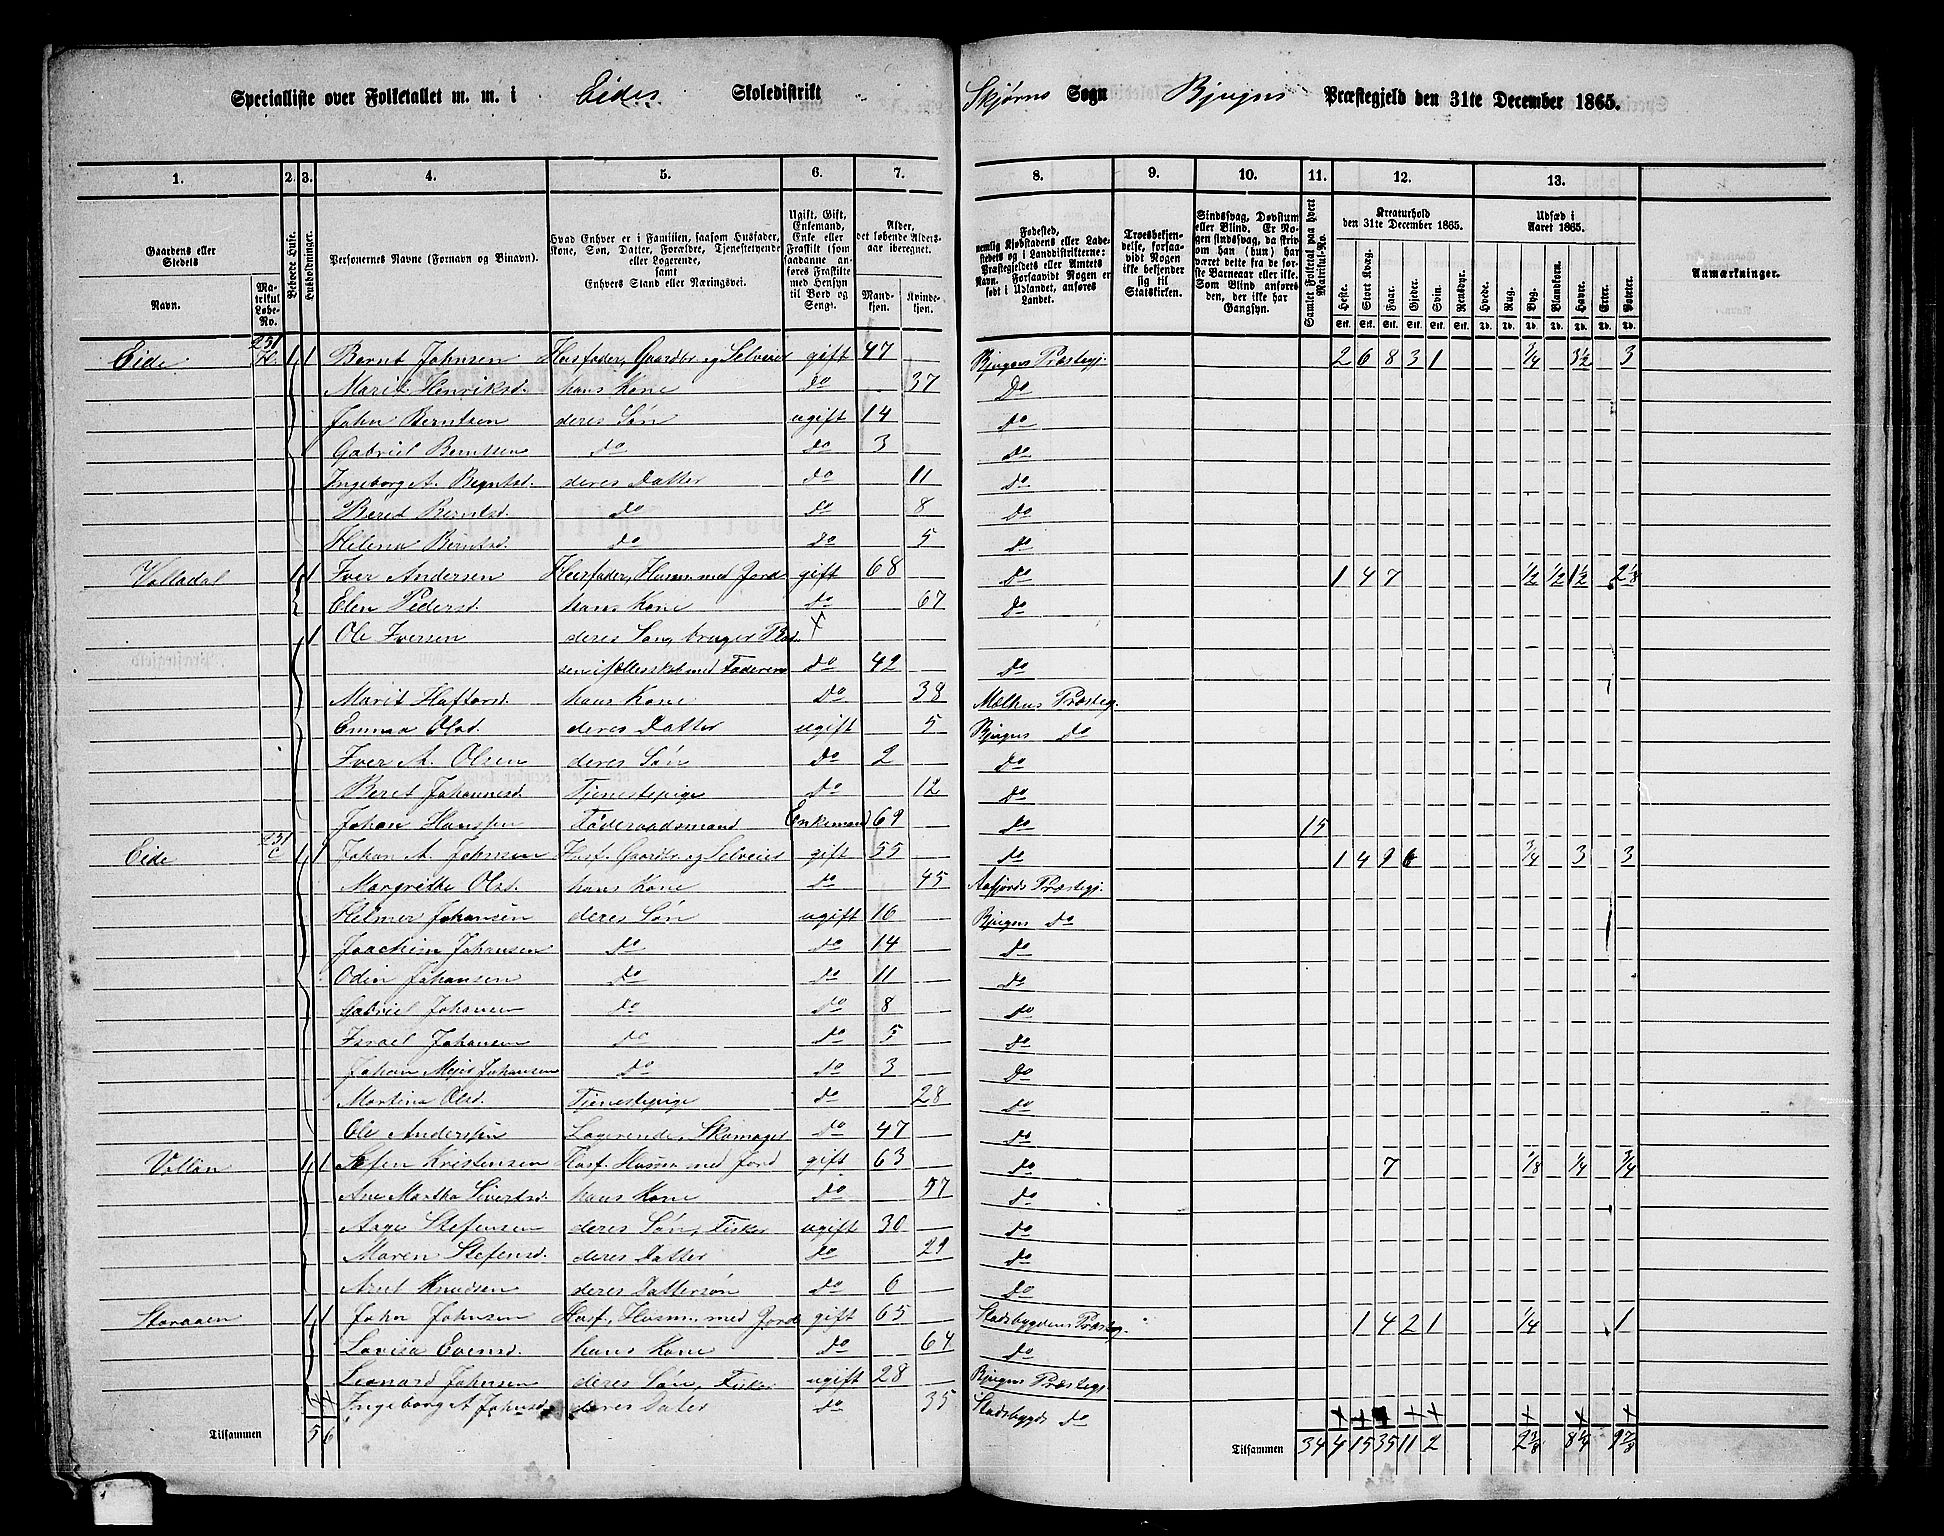 Specialliste over Folketallet m. m. i Eides Skoledistrikt Skjørns Sogn Bjugns Præstegjeld den 31te December 1865.
1. 2. 3. 4. 5. 6. 7. 8. 9. 10. 11. 12. 13.
Gaardens eller Stedets Navn. Matrikul Løbe-No. Beboede Huse. Husholdninger. Personernes Navne (Fornavn og Binavn). Hvad Enhver er i Familien, saasom Husfader, Kone, Søn, Datter, Forældre, Tjenestetyende eller Logerende, samt Enhvers Stand eller Næringsvei. Ugift, Gift, Enkemand, Enke eller Fraskilt i som saadanne anføres Fraskilte med Hensyn til Bord og Seng. Alder, det løbende Aldersaar iberegnet. Mandkjøn. Kvindekjøn.
Fødested, nemlig Kjøbstadens eller Ladestedets og i Landdistrikterne: Præstegjeldets eller Amtets Navn. Forsaavidt Nogen er født i Udlandet, anføres Landet. Troesbekjendelse, forsaavidt Nogen ikke bekjender sig til Statskirken. Sindssvag, Døvstum eller Blind. Er Nogen sindssvag, da skriv om han (hun) har været dette fra de første Barneaar eller anføres den, der ikke har Gangsyn. Samlet Folketal paa hvert Matrikul-No. Kreaturhold den 31te December 1865. Heste. Stort Kvæg. Faar. Gjeder. Svin. Rensdyr. Udsæd i Aaret 1865. Hvede. Rug. Byg. Blandkorn. Havre. Erter. Poteter. Anmærkninger.
Eide 251 1 1 Bernt Johnsen Husfader, Gaardbr og Selveier gift 47 Bjugns Præstegj. 2 6 8 3 1 3/4 3 1/2 3
Marit Henriksd. hans Kone Do 37 Do
John Berntsen deres Søn ugift 14 do
Gabriel Berntsen do do 3 do
Ingeborg A. Berntsd. deres Datter do 11 do
Beret Berntsd. do do 8 do
Helena Berntsd. do do 5 do
Valladal 1 1 Iver Andersen Huusfader, Husm. med Jord gift 68 Do 1 4 7 1/2 1/2 1 1/2 2 1/8
Elen Pedersd. hans Kone do 67 Do
1 Ole Iversen deres Søn, bruger Plad- X
sen i fællesskab med Faderen do 42 Do
Marit Haftorsd. hans Kone Do 38 Melhus Præsteg.
Emma Olsd. deres Datter ugift 5 Bjugns do
Iver A. Olsen deres Søn do 2 do
Beret Johannesd. Tjenestepige do 12 do
Johan Hanssen Føderaadsmand Enkemand 69 do 15
Eide 251 c 1 1 Johan A. Johnsen Husf. Gaardbr. og Selveier gift 55 do 1 4 9 6 3/4 3 3
Margrethe Olsd. hans Kone do 45 Aafjords Præstegj.
Helmer Johansen deres Søn ugift 16 Bjugns do
Joachim Johansen do do 14 do
Odin Johansen do do 11 do
Gabriel Johansen do do 8 do
Israel Johansen do do 5 do
Johan Johansen do do 3 do
Martina Olsd. Tjenestepige do 28 do
Ole Anderssen Logerende, Skomager do 47 do
1 1 Stefen Kristensen Husf. Husm. med Jord gift 63 do 7 1/8 1/4 3/4
Ane Martha Sivertsd. hans Kone do 57 do
Aage Stefensen deres Søn, Fisker ugift 30 do
Maren Stefensd. deres Datter Do 29 do
Knudsen deres Dattersøn do 0 do
Storaaen 1 1 John Johnsen Husf., Husm. med Jord gift 65 Stadsbygdens Præsteg. 1 4 2 1 1/4 1
Lovisa Evensd. hans Kone do 64 do
Leonard Johnsen deres Søn, Fisker ugift 28 Bjugns Præstegj.
Ingeborg A Johnsd. deres Dater do 35 Stadsbygds do
Tilsammen 5 6 Tilsammen 34 4 15 35 11 2 2 3/8 8 1/4 9 7/8